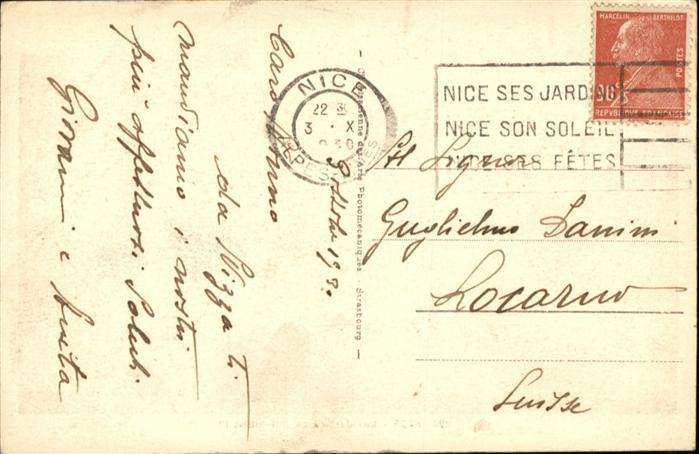 3 Ottobre 1930
Caro
da Nizza ti
mandiamo i nostri
più affettuosi Saluti
Giovanni e Anita
NICE
22 3
3 - X
1930
ALPES-
NICE SES JARDINS
NICE SON SOLEIL
NICE SES FÊTES
MARCELIN BERTHELOT
POSTES
90c
REPUBLIQUE FRANÇAISE
Cie Alsacienne des Arts Photomécaniques - Strasbourg
Signor
Guglielmo
Locarno
Suisse